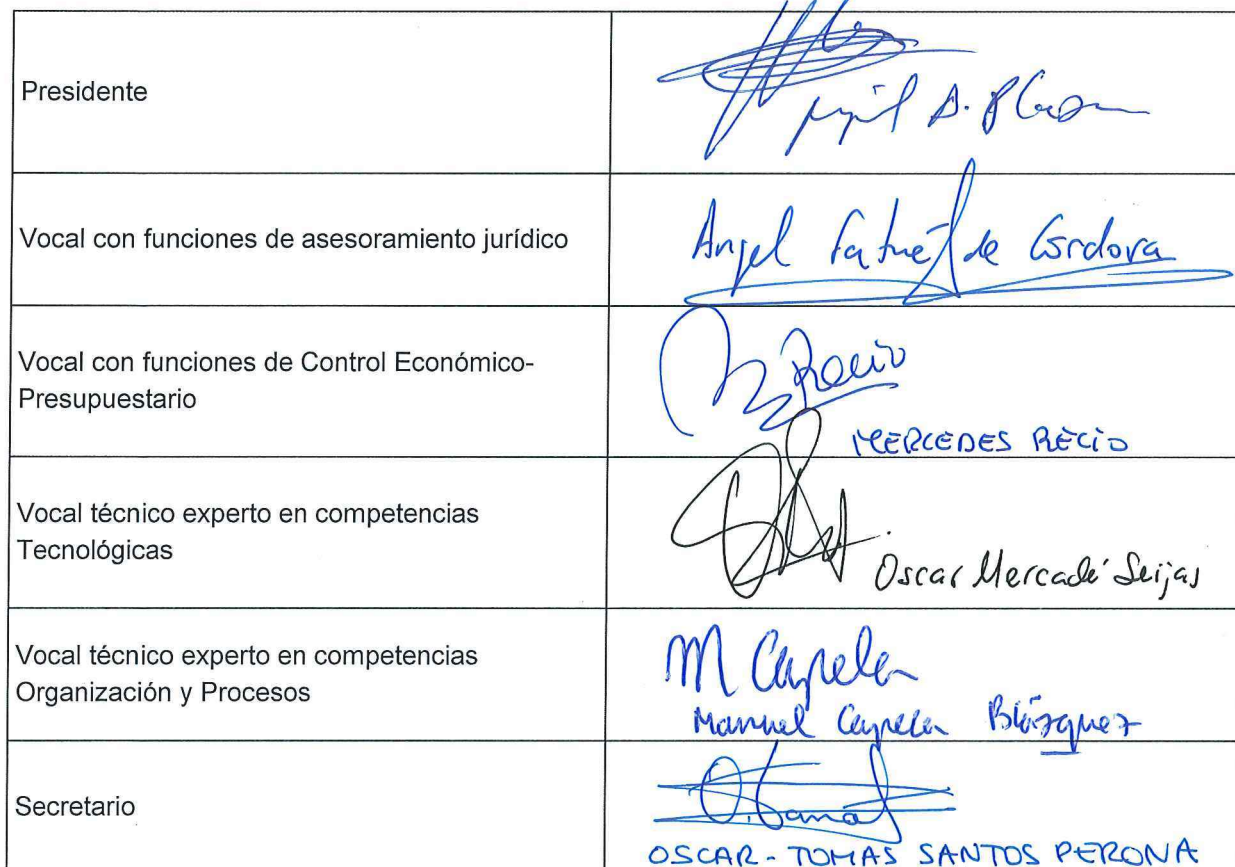 Presidente
Vocal con funciones de asesoramiento jurídico
Angel de Córdova
Vocal con funciones de Control Económico-
Presupuestario
Recio
MERCEDES RECIO
Vocal técnico experto en competencias
Tecnológicas
Oscar Mercadé Seijas
Vocal técnico experto en competencias
Organización y Procesos
M Capela
Manuel Capela Blázquez
Secretario
OSCAR-TOMAS SANTOS PERONA